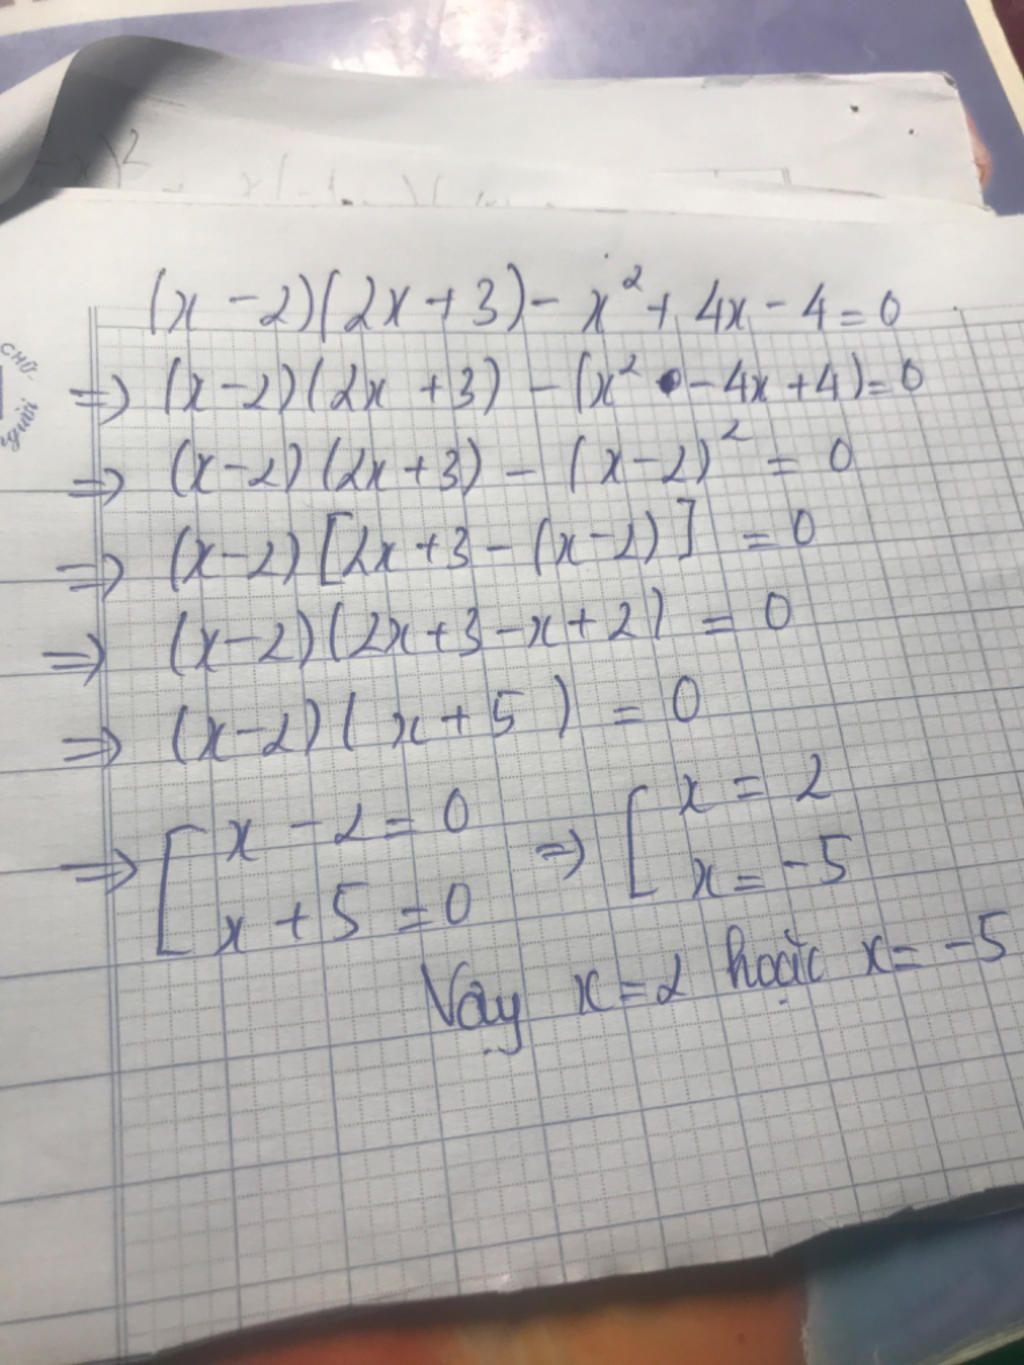 (x - 2)(2x + 3) - x² + 4x - 4 = 0
=> (x - 2)(2x + 3) - (x² - 4x + 4) = 0
=> (x - 2)(2x + 3) - (x - 2)² = 0
=> (x - 2)[2x + 3 - (x - 2)] = 0
=> (x - 2)(2x + 3 - x + 2) = 0
=> (x - 2)(x + 5) = 0
=> [ x - 2 = 0 => [ x = 2
x + 5 = 0 x = -5
Vậy x = 2 hoặc x = -5